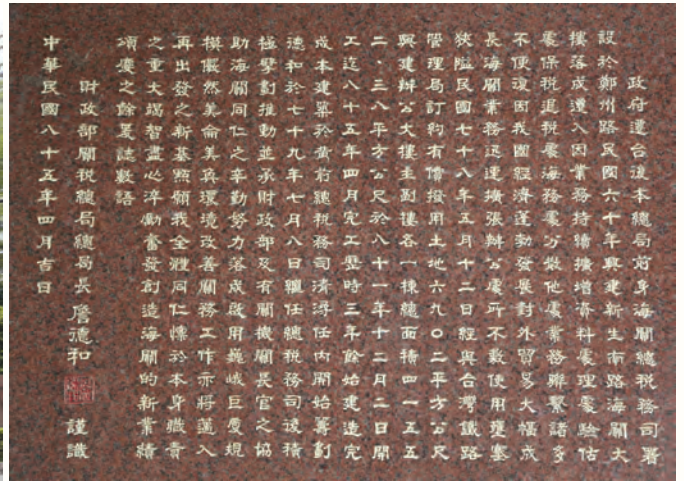 政府遷台後本總局前身海關總稅務司署
設於鄭州路民國六十年興建新生南路海關大
樓落成遷入因業務持續擴增資料處理處驗估
處保稅退稅處海務處分散他處業務聯繫諸多
不便復因我國經濟蓬勃發展對外貿易大幅成
長海關業務迅速擴張辦公處所不敷使用壅塞
狹隘民國七十八年五月十二日經與台灣鐵路
管理局訂約有償撥用土地六九〇二平方公尺
興建辦公大樓主副樓各一棟總面積四一五五
二．三八平方公尺於八十一年十二月二日開
工迄八十五年四月完工歷時三年餘始建造完
成本建築於黃前總稅務司清潯任內開始籌劃
德和於七十九年七月八日繼任總稅務司後積
極擘劃推動並承財政部及有關機關長官之協
助海關同仁之辛勤努力落成啟用巍峨巨廈規
模儼然美侖美奐環境改善關務工作亦將邁入
再出發之新基點願我全體同仁懍於本身職責
之重大竭智盡心淬勵奮發創造海關的新業績
頌慶之餘爰誌數語
財政部關稅總局總局長 詹德和 謹識
中華民國八十五年四月吉日